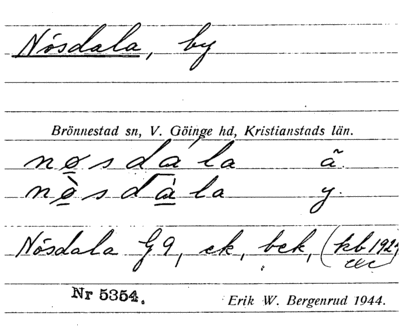 Nösdala, by
Brönnestad sn, V. Göinge hd, Kristianstads län.
nø̱sdá̱la ä.
nø̱̀sdà̱la y.
Nösdala G9, ek, bek, (kb 192
Nr 5354. Erik W. Bergenrud 1944.